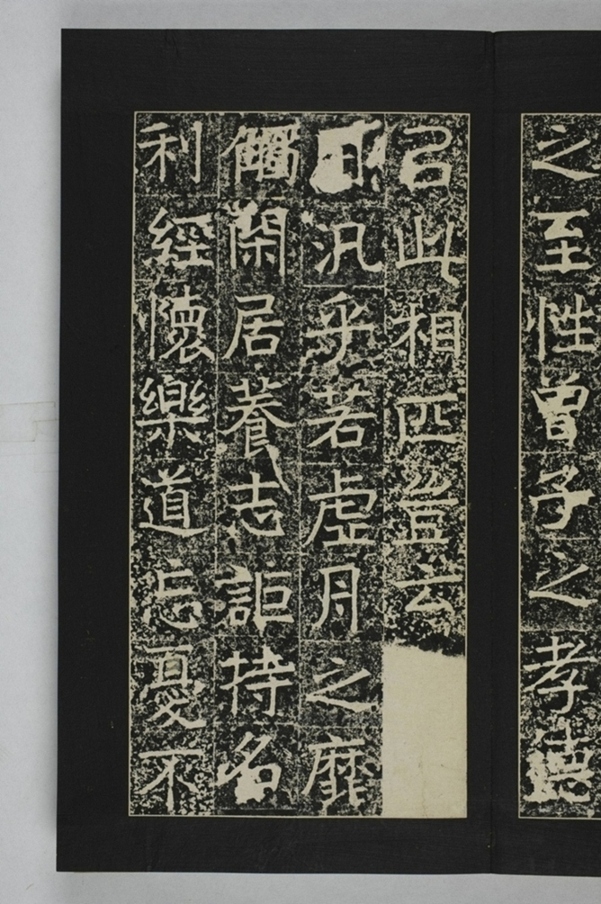 之至性曾子之孝德
以此相匹豈云
汎乎若虛舟之靡
觸閑居養志詎持名
利經懷樂道忘憂不